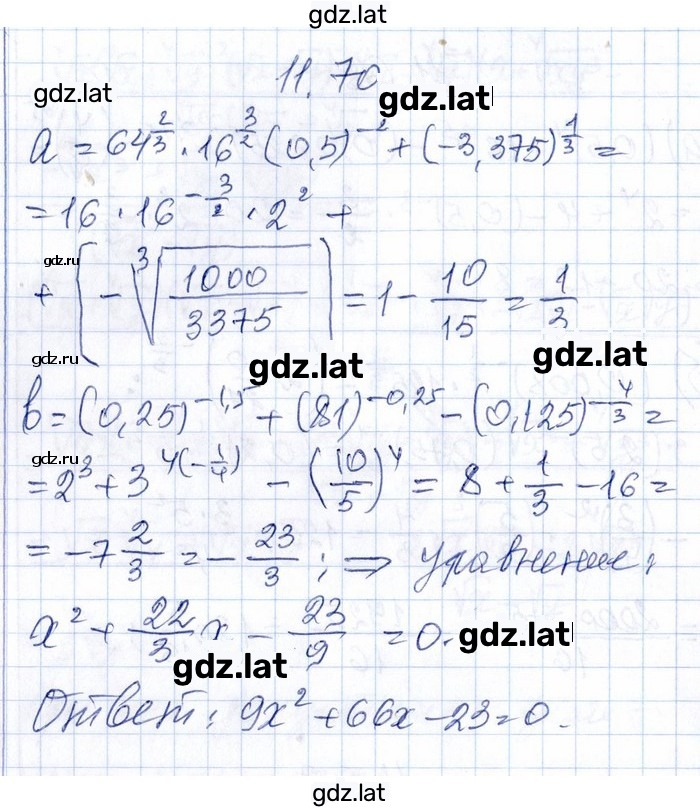 gdz.lat
11.70
gdz.lat gdz.lat
a = 64^{2/3} · 16^{3/2} (0,5)^{-2} + (-3,375)^{1/3} =
= 16 · 16^{-3/2} · 2^2 +
gdz.ru
+ (-∛(1000/3375)) = 1 - 10/15 = 1/3
gdz.ru gdz.lat gdz.lat
b = (0,25)^{-1,5} + (81)^{-0,25} - (0,125)^{-4/3} =
gdz.ru
= 2^3 + 3^{4(-1/4)} - (10/5)^4 = 8 + 1/3 - 16 =
= -7 2/3 = - 23/3 ; ⇒ уравнение:
x^2 + 22/3 x - 23/9 = 0.
gdz.lat gdz.lat
Ответ: 9x^2 + 66x - 23 = 0.
gdz.lat